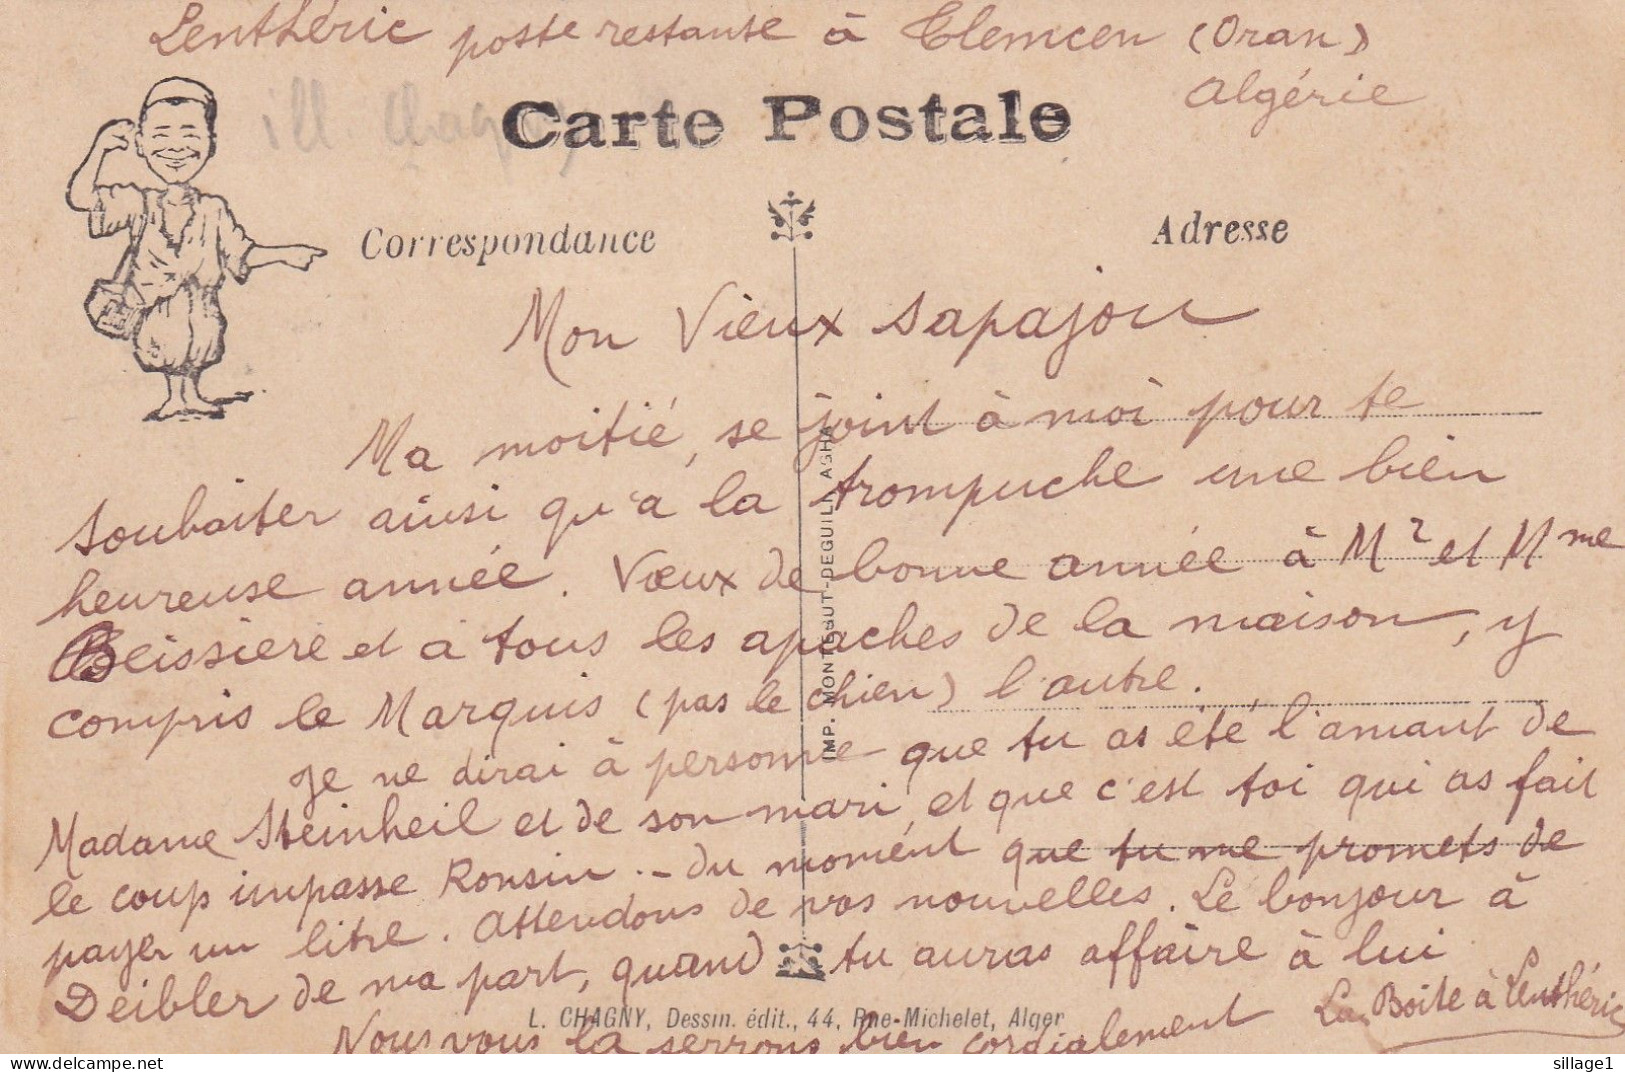 Lenthéric poste restante à Tlemcen (Oran)
Algérie
ill Chagny
Carte Postale
Correspondance
Adresse
Mon Vieux sapajou
Ma moitié, se joint à moi pour te
souhaiter ainsi qu'à la trompuche une bien
heureuse année. Vœux de bonne année à Mr et Mme
Beissière et à tous les apaches de la maison, y
compris le Marquis (pas le chien) l'autre.
Je ne dirai à personne que tu as été l'amant de
Madame Steinheil et de son mari, et que c'est toi qui as fait
le coup impasse Ronsin. - du moment que tu me promets de
payer un litre. Attendons de vos nouvelles. Le bonjour à
Deibler de ma part, quand tu auras affaire à lui
Nous vous la serrons bien cordialement La Boite à Lenthéric
IMP. MONTÉGUT-DEGUILI, AGHA
L. CHAGNY, Dessin. édit., 44, Rue-Michelet, Alger
sillage1